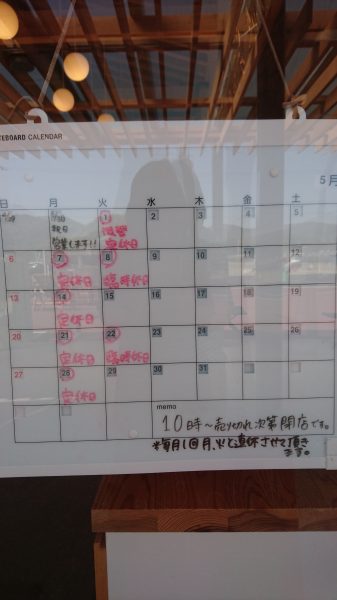 TEBOARD CALENDAR
5月
日 月 火 水 木 金 土
4/29 4/30 1 2 3 4 5
祝日
営業します!! 定休日
6 7 8 9 10 11 12
定休日 臨時休日
13 14 15 16 17 18 19
定休日
20 21 22 23 24 25 26
定休日 臨時休日
27 28 29 30 31
定休日
memo
10時〜売り切れ次第閉店です。
*毎月1回月、火で連休させて頂き
ます。